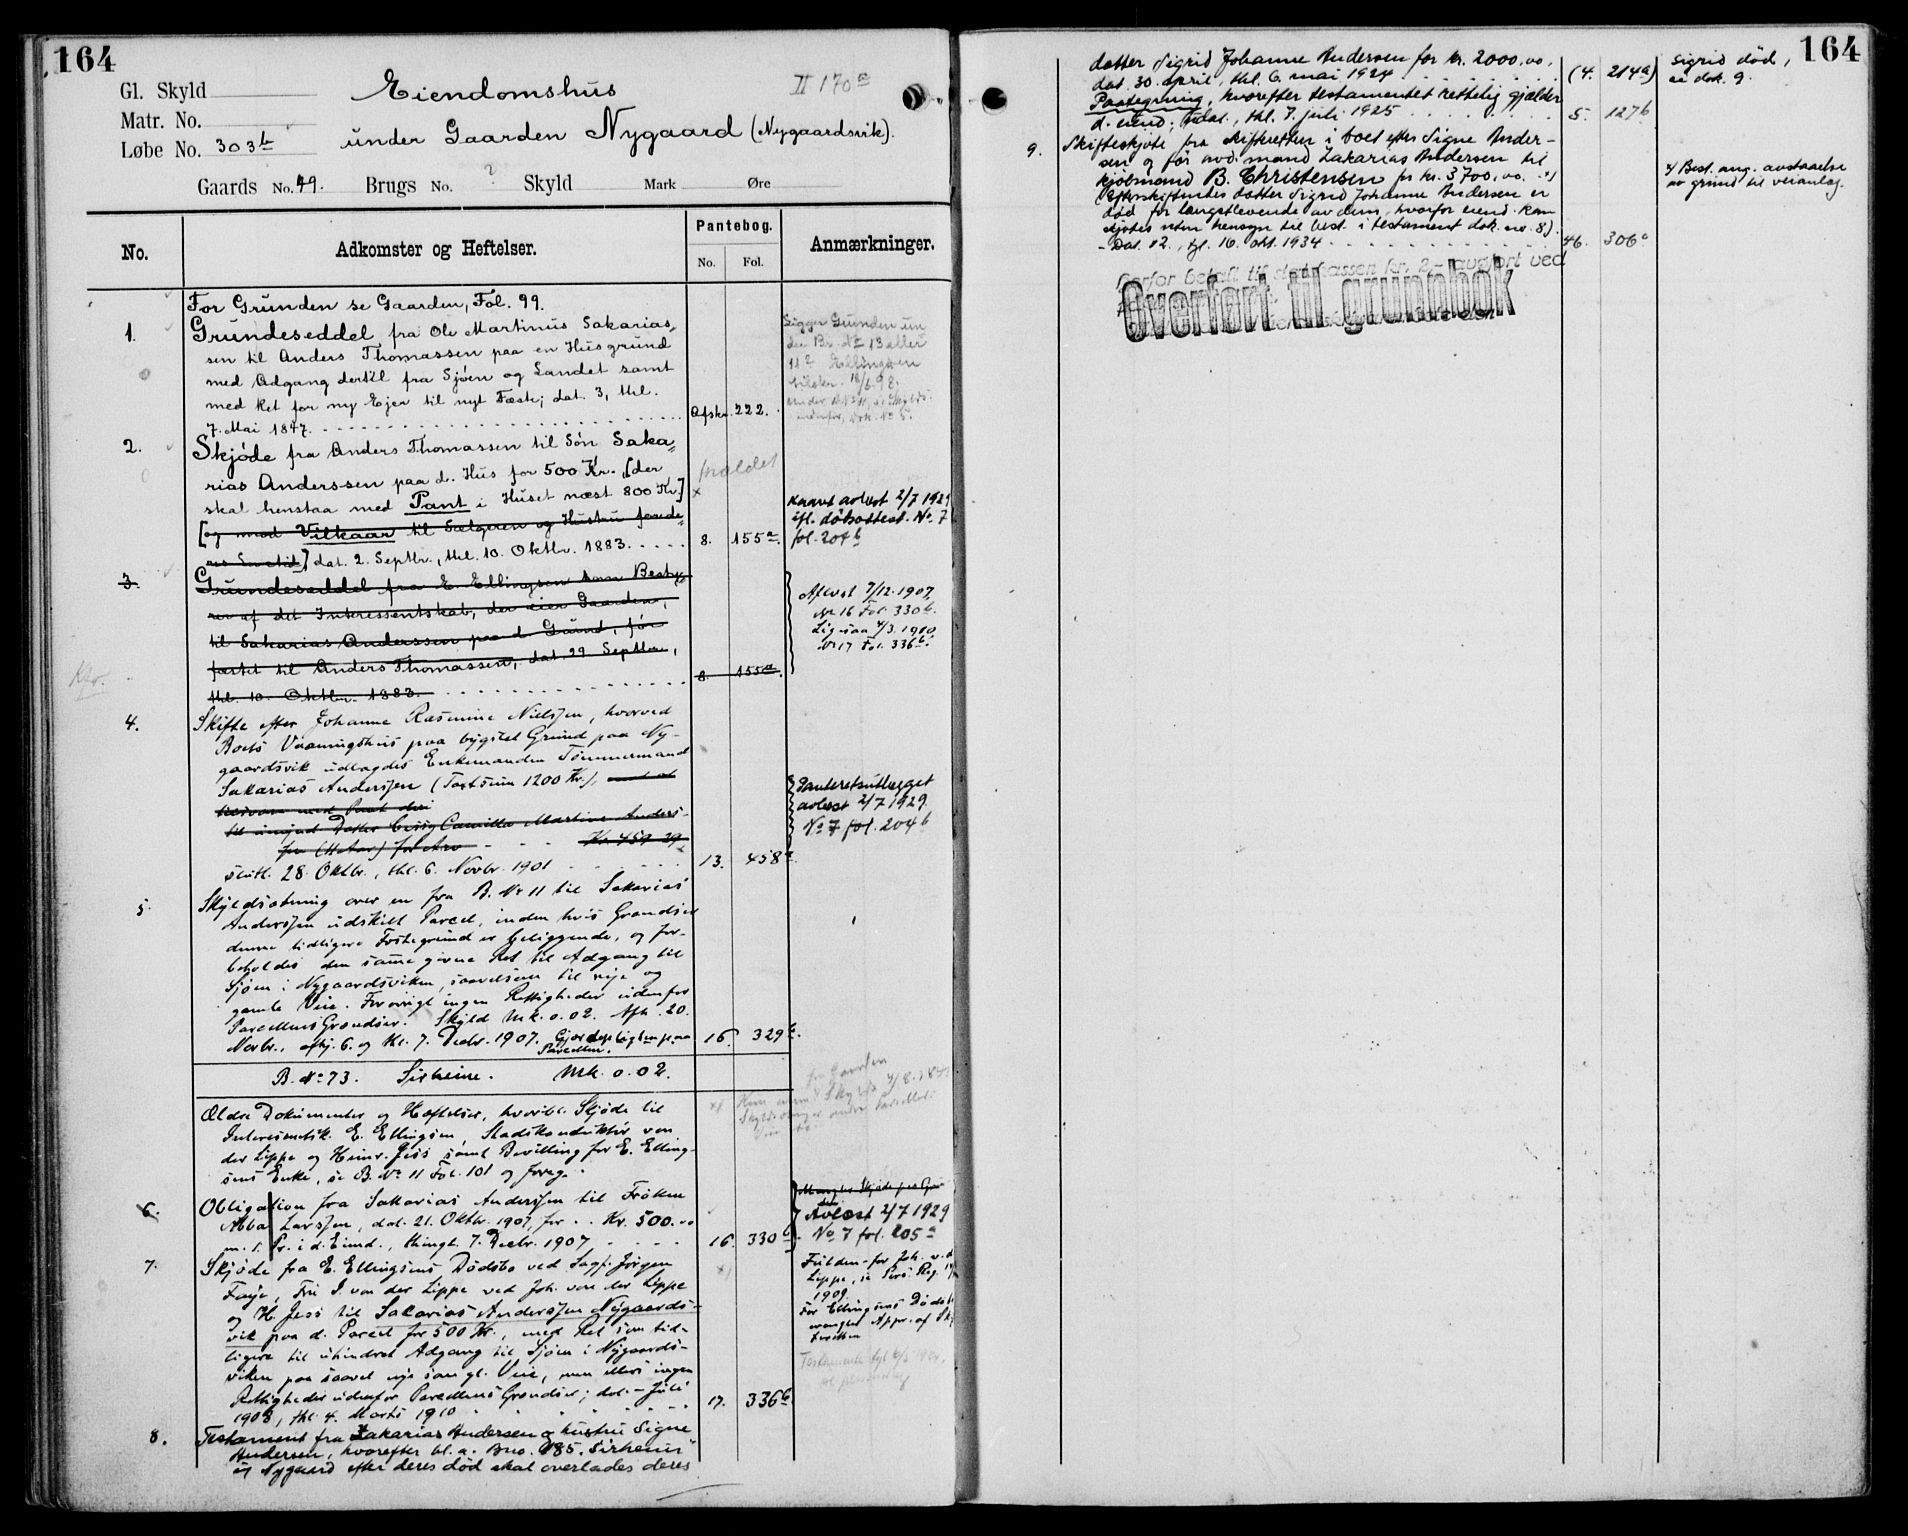 164
Gl. Skyld
Matr. No.
Løbe No. 303 b
Eiendomshus
II 170 a
under Gaarden Nygaard (Nygaardsvik).
Gaards No. 49. Brugs No. ? Skyld Mark Øre
No. Adkomster og Heftelser. Pantebog. No. Fol. Anmærkninger.
For Grunden se Gaarden, Fol. 99.
1. Grundeseddel fra Ole Martinus Sakarias-
sen til Anders Thomassen paa en Husgrund
med Adgang dertil fra Sjøen og Landet samt
med Ret for ny Ejer til nyt Fæste; dat. 3, thl.
7. Mai 1877. Afskr. 222.
Ligger Grunden un
der Br. No 13 eller
11? Ellingsen
tilskr. 18/6 98.
2. Skjøde fra Anders Thomassen til Søn Saka-
rias Anderssen paa d. Hus for 500 Kr. [der
skal henstaa med Pant i Huset næst 800 Kr]
[og mod Vilkaar til Sælgeren og Hustru for de-
res Levetid] dat. 2. Septbr., thl. 10. Oktbr. 1883. 8. 155 a.
forældet
x
Kaaret avlyst 2/7 1929
ifl. dødsattest. No. 7
fol. 204 b
3. Grundeseddel fra E. Ellingsen som Besty-
rer af det Interessentskab, der eier Gaarden,
til Sakarias Anderssen paa d. Grund, før
fæstet til Anders Thomassen, dat. 29 Septbr.,
thl. 10. Oktbr. 1883. 8. 155 a.
Aflyst 7/12. 1907,
No 16 Fol. 330 b.
Ligesaa 4/3. 1910
No 17 Fol. 336 b.
4. Skifte efter Johanne Rasmine Nielssen, hvorved
Boets Vaaningshus paa bygslet Grund paa Ny-
gaardsvik udlagdes Enkemanden Tømmermand
Sakarias Anderssen (Taxtsum 1200 Kr.),
til umynd. Datter Cissy Camilla Martine Anders-
sen for Arv Kr. 459.29
slutt. 28. Oktbr., thl. 6. Novbr. 1901 13. 458 a
Panteretsutlægget
avlæst 2/7 1929
No 7 fol. 204 b
5. Skyldsætning over en fra B. No 11 til Sakarias
Anderssen udskilt Parcel, inden hvis Grændser
denne tidligere Fæstegrund er beliggende, og for-
beholdes den samme givne Ret til Adgang til
Sjøen i Nygaardsviken, saavelsom til nye og
gamle Veie. Forøvrigt ingen Rettigheder udenfor
Parcellens Grændser. Skyld Mk. 0.02. Afh. 20.
Novbr., afhj. 6. og thl. 7. Decbr. 1907. Gjerdepligten paa
Parcellen. 16. 329 b.
B. No 73. Sirheim. Mk. 0.02.
Ældre Dokumenter og Hæftelser, hvoribl. Skjøde til
Interessentsk. E. Ellingsen, Stadskonduktør von
der Lippe og Henr. Jess samt Bevilling for E. Elling-
sens Enke, se B. No 11 Fol. 101 og foreg.
6. Obligation fra Sakarias Anderssen til Frøken
Abba Larssen, dat. 21. Oktbr. 1907, for Kr. 500.00
m. 1. Pr. i d. Eiend., thingl. 7. Decbr. 1907 16. 330 b
Avlæst 2/7 1929
No 7 fol. 205 a
7. Skjøde fra E. Ellingsens Dødsbo ved Sagf. Jørgen
Faye, Fru S. von der Lippe ved Joh. von der Lippe
og H. Jess til Sakarias Anderssen Nygaards-
vik paa d. Parcel for 500 Kr., med Ret som tid-
ligere til uhindret Adgang til Sjøen i Nygaards-
viken paa saavel nye som gl. Veie, men ellers ingen
Rettigheder udenfor Parcellens Grændser; dat. - Juli
1908, thl. 4. Marts 1910 17. 336 b
Fuldm. for Joh. v. d.
Lippe, se Pers. Reg.
1909.
For Ellingsens Dødsb
mangler Appr. af Sk
8. Testament fra Zakarias Andersen og hustru Signe
Andersen, hvorefter bl. a. Bno. 785, "Sirheim"
av Nygaard efter deres død skal overlades deres
164
datter Sigrid Johanne Andersen for kr. 2000,00,
dat. 30. april, thl. 6. mai 1924 (4. 214 a)
Sigrid død,
se dok. 9.
Paategning, hvorefter testamentet rettelig gjælder
d. eiend; udat., thl. 7. juli 1925 5. 127 b
9. Skifteskjøte fra skifteretten i boet efter Signe Ander-
sen og før avd. mand Zakarias Andersen til
kjøbmand B. Christensen for kr. 3700,00. x)
(Efterskiftendes datter Sigrid Johanne Andersen er
død før længstlevende av dem, hvorfor eiend. kan
skjøtes uten hensyn til best. i testament dok. nr. 8).
- Dat. 12., tgl. 16. okt. 1934 46. 306 a
x) Best. ang. avstaaelse
av grund til veianlæg.
Herfor betalt til statskassen kr. 2,- avgjort ved
Overført til grunnbok